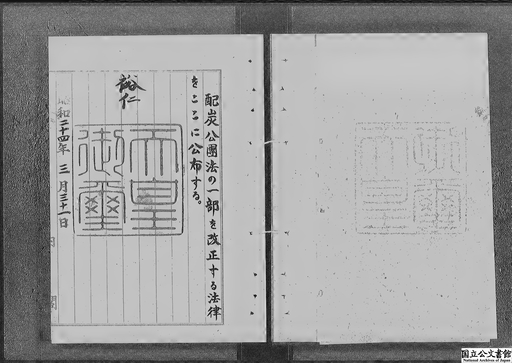 配炭公團法の一部を改正する法律
をここに公布する。
裕仁
昭和二十四年三月三十一日
天皇
御璽
国立公文書館
National Archives of Japan